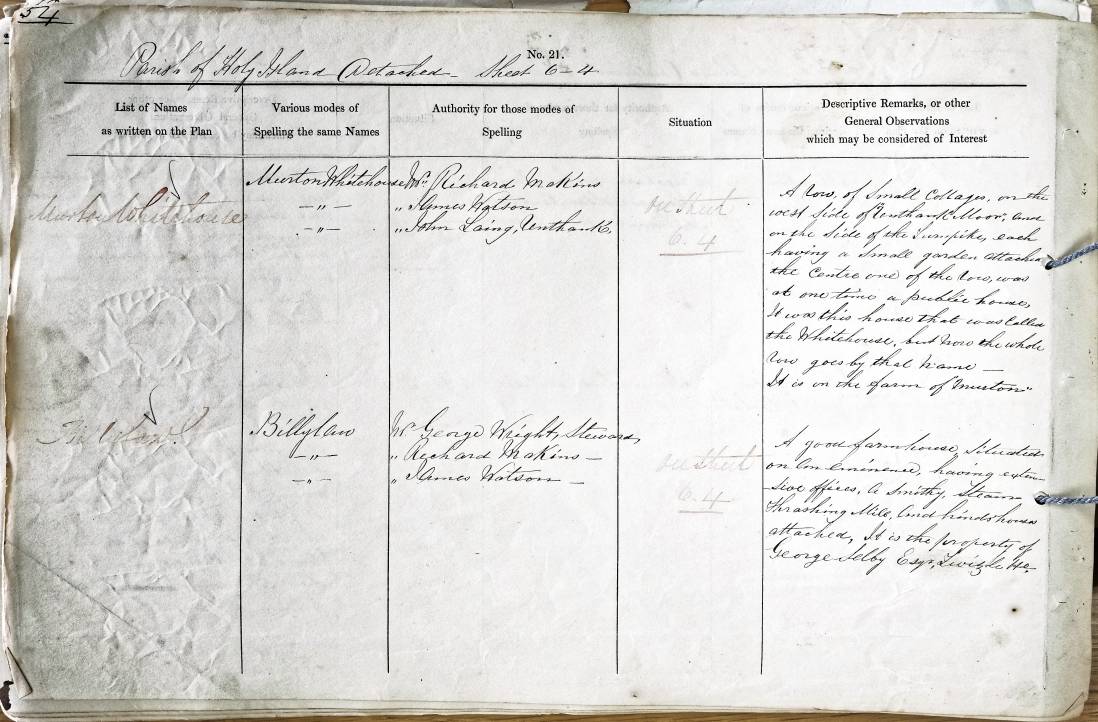 54
No. 21.
Parish of Holy Island Detached - Sheet 6-4
List of Names
as written on the Plan
Various modes of
Spelling the same Names
Authority for those modes of
Spelling
Situation
Descriptive Remarks, or other
General Observations
which may be considered of Interest
Murton Whitehouse
Murton Whitehouse
— " —
— " —
Mr. Richard Makins
" James Watson
" John Laing, Unthank,
on Sheet
6.4
A row, of Small Cottages, on the
west Side of Unthank Moor, and
on the Side of the Turnpike, each
having a Small garden attached
the Centre one of the row, was
at one time a public house,
It was this house that was Called
the Whitehouse, but now the whole
row goes by that name —
It is on the farm of "Murton"
Billylaw
— " —
— " —
Mr. George Wright, Steward,
" Richard Makins —
" James Watson —
on Sheet
6.4
A good farm house, Situated
on an Eminence, having exten-
sive offices, a Smithy, Steam
Thrashing Mill, and hinds houses
attached, It is the property of
George Selby Esqr,